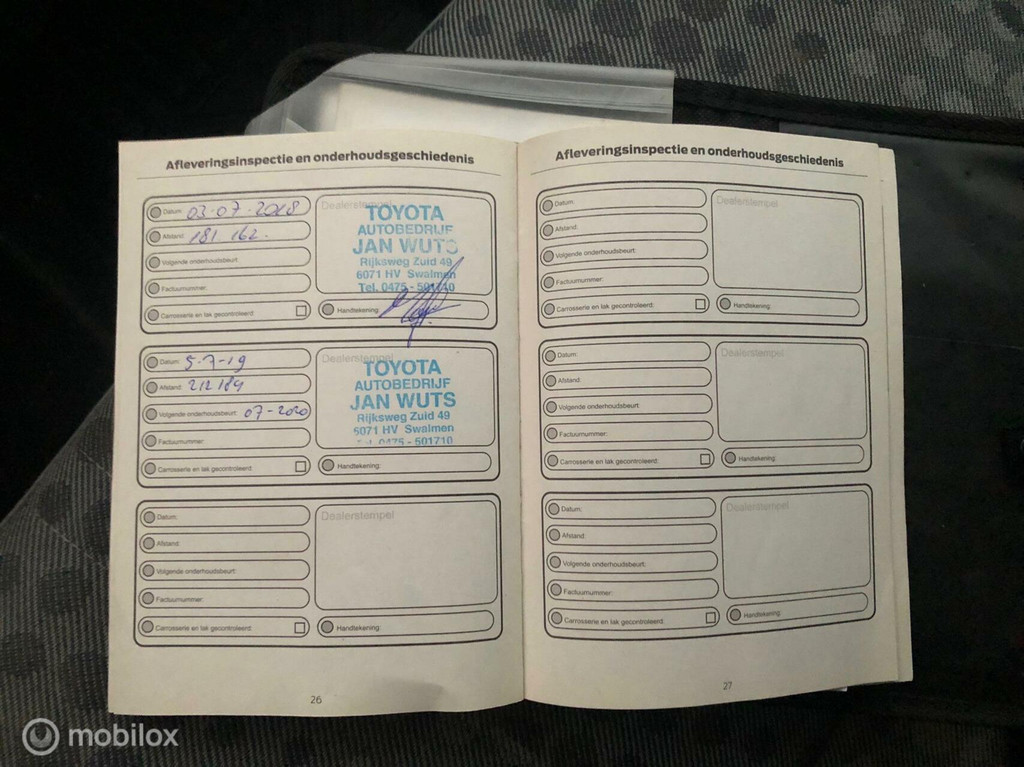 Afleveringsinspectie en onderhoudsgeschiedenis
Datum: 03-07-2018
Afstand: 181 162.
Volgende onderhoudsbeurt:
Factuurnummer:
Carrosserie en lak gecontroleerd:
Dealerstempel
TOYOTA
AUTOBEDRIJF
JAN WUTS
Rijksweg Zuid 49
6071 HV Swalmen
Tel. 0475 - 501710
Handtekening:
Datum: 5-7-19
Afstand: 212 189
Volgende onderhoudsbeurt: 07-2020
Factuurnummer:
Carrosserie en lak gecontroleerd:
Dealerstempel
TOYOTA
AUTOBEDRIJF
JAN WUTS
Rijksweg Zuid 49
6071 HV Swalmen
Tel. 0475 - 501710
Handtekening:
Datum:
Afstand:
Volgende onderhoudsbeurt:
Factuurnummer:
Carrosserie en lak gecontroleerd:
Dealerstempel
Handtekening:
26
Afleveringsinspectie en onderhoudsgeschiedenis
Datum:
Afstand:
Volgende onderhoudsbeurt:
Factuurnummer:
Carrosserie en lak gecontroleerd:
Dealerstempel
Handtekening:
Datum:
Afstand:
Volgende onderhoudsbeurt:
Factuurnummer:
Carrosserie en lak gecontroleerd:
Dealerstempel
Handtekening:
Datum:
Afstand:
Volgende onderhoudsbeurt:
Factuurnummer:
Carrosserie en lak gecontroleerd:
Dealerstempel
Handtekening:
27
mobilox